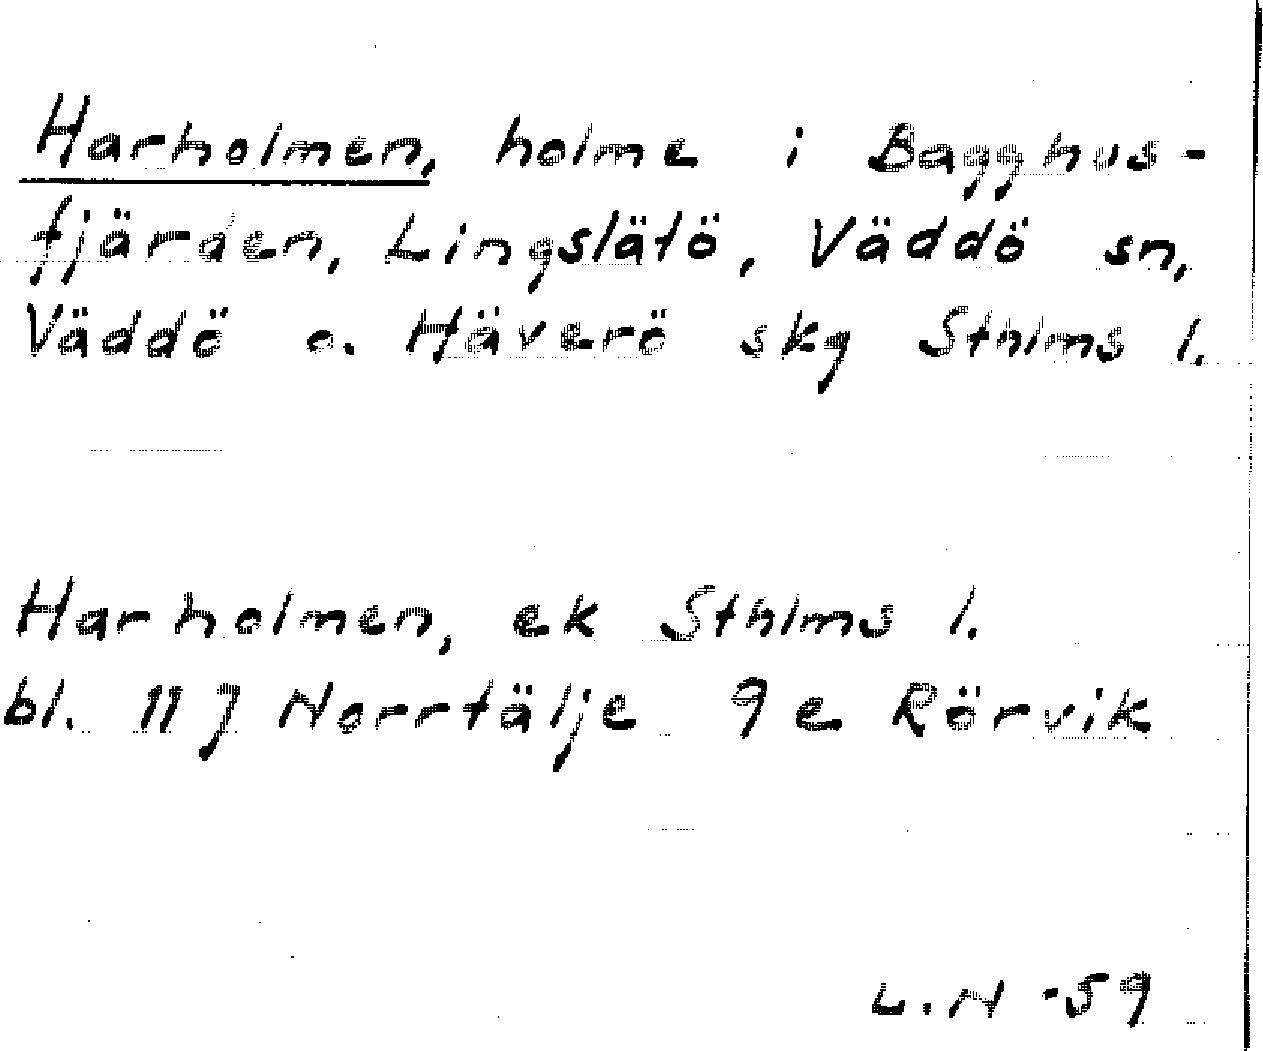 Harholmen, holme i Bagghus-
fjärden, Lingslätö, Väddö sn,
Väddö o. Häverö skg Sthlms l.
Harholmen, ek Sthlms l.
bl. 11 J Norrtälje 9 e Rörvik
L.N -59